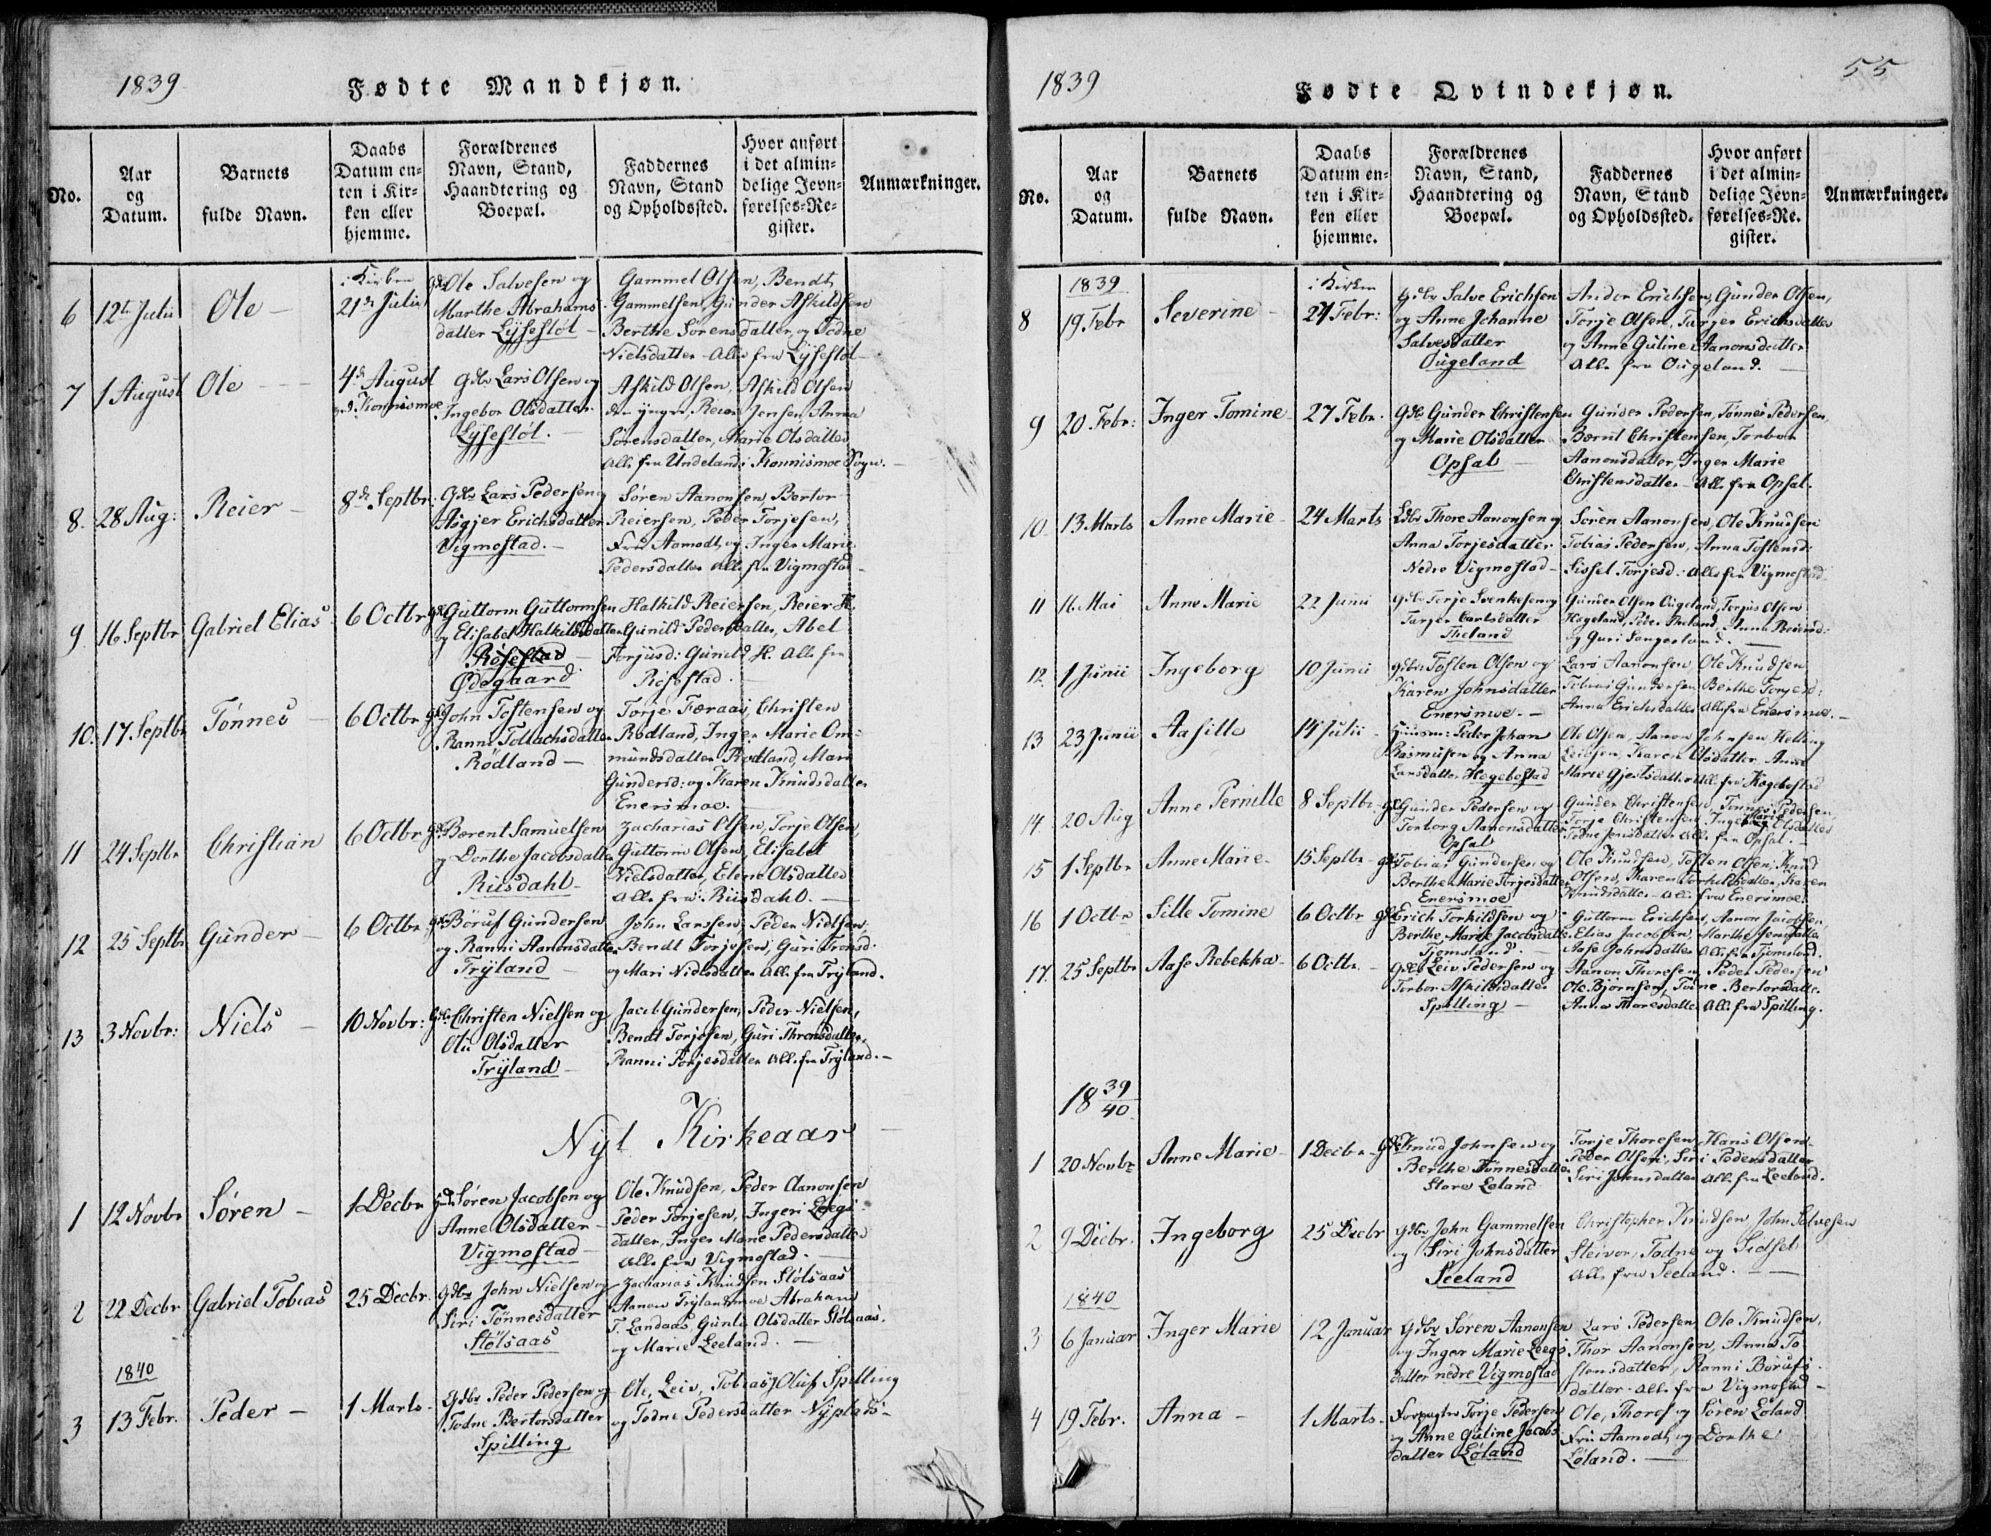 1839
Fødte Mandkjøn.
No.
Aar
og
Datum.
Barnets
fulde Navn.
Daabs
Datum en-
ten i Kir-
ken eller
hjemme.
Forældrenes
Navn, Stand,
Haandtering og
Boepæl.
Faddernes
Navn, Stand
og Opholdssted.
Hvor anført
i det almin-
delige Jevn-
førelses-Re-
gister.
Anmærkninger.
6
12te Julii
Ole
i Kirken
21de Julii
Ole Salvesen og
Marthe Abrahams
datter Lÿsestøl
Gammel Olsen, Bendt
Gammelsen, Gunder Askildsen
Berthe Sørensdatter og Todne
Nielsdatter Alle fra Lÿsestøl
7
1 August
Ole
4de August
Konnismoe
Gdbr Lars Olsen og
Ingebor Olsdatter
Lÿsestøl.
Askild Olsen, Askild Olsen
den yngre, Reier Jensen, Anna
Sørensdatter, Marie Olsdatter
Alle fra Undeland i Konnismoe Sogn.
8.
28 Aug:
Reier
8de Septbr.
Gdbr Lars Pedersen og
Asgjer Erichsdatter
Vigmostad.
Søren Aanonsen, Bertor
Reiersen, Peder Torjesen,
Fru Aamodt og Inger Marie
Pedersdatter Alle fra Vigmostad
9
16 Septbr
Gabriel Elias
6 Octbr
Guttorm Guttormsen
og Elisabet Halkildsdatter
Røsestad
Ødegaard
Halkild Reiersen, Reier H.
Gunild Pedersdatter, Abel
Torjusd: Gunild H. Alle fra
Røsestad.
10.
17 Septbr
Tønnes
6 Octbr
John Tostensen og
Ranni Tollachsdatter
Rødland
Torje Færaas, Christen
Rødland, Inger Marie Om-
mundsdatter Rødland, Mari
Gundersd: og Karen Knudsdatter
Enersmoe.
11
24 Septbr
Christian
6 Octbr
Bærent Samuelsen
og Dorthe Jacobsdatter
Riisdahl
Zacharias Olsen, Torje Olsen,
Guttorm Olsen, Elisabet
Nielsdatter, Elene Olsdatter
Alle fra Riisdahl.
12
25 Septbr
Gunder
6 Octbr
Børuf Gundersen
og Ranni Aanonsdatter
Trÿland
John Larssen, Peder Nielsen,
Bendt Torjesen, Guri Tronsd.
og Mari Nielsdatter Alle fra Trÿland.
13
3 Novbr:
Niels
10 Novbr:
Christen Nielsen og
Oli Olsdatter
Trÿland
Jacob Gundersen, Peder Nielsen,
Bendt Torjesen, Guri Thronsdatter,
Ranni Torjesdatter Alle fra Trÿland.
Nyt Kirkeaar
1
12 Novbr
Søren
1 Decbr
Søren Jacobsen og
Anne Olsdatter
Vigmostad
Ole Knudsen, Peder Aanonsen
Peder Torjesen, Ingeri Leegs
datter, Inger Marie Pedersdatter
Alle fra Vigmostad.
2
22 Decbr
Gabriel Tobias
25 Decbr.
Gdbr John Nielsen og
Siri Tønnesdatter
Stølsaas
Zacharias Knudsen Stølsaas
Aanon Trÿlandsmoe Abraham
T. Landaas, Gunild Olsdatter Stølsaas.
og Marie Leeland.
1840
3
13 Febr.
Peder
1 Marts
Gdbr Peder Pedersen og
Todne Bertorsdatter
Spilling
Ole, Leiv, Tobias, Oluf Spilling
og Todne Pedersdatter Nÿplads
1839
55
Fødte Qvindekjøn.
No.
Aar
og
Datum.
Barnets
fulde Navn.
Daabs
Datum en-
ten i Kir-
ken eller
hjemme.
Forældrenes
Navn, Stand,
Haandtering og
Boepæl.
Faddernes
Navn, Stand
og Opholdssted.
Hvor anført
i det almin-
delige Jevn-
førelses-Re-
gister.
Anmærkninger.
1839
8
19 Febr
Severine
i Kirken
27 Febr:
Gdbr Salve Erichsen
og Anne Johanne
Salvesdatter
Ougeland
Ander Erichsen, Gunder Olsen,
Torje Olsen, Tarjer Erichsdatter
og Anne Guline Aanonsdatter
Alle fra Ougeland.
9
20 Febr:
Inger Tomine
27 Febr.
Gdbr Gunder Christensen
og Marie Olsdatter
Opsal
Gunder Pedersen, Tønnes Pedersen,
Bærnt Christensen, Torbor
Aanonsdatter, Inger Marie
Christensdatter Alle fra Opsal.
10
13 Marts
Anne Marie
24 Marts
Thore Aanonsen og
Anna Torjesdatter
Nedre Vigmostad
Søren Aanonsen, Ole Knudsen
Tobias Pedersen, Anna Tostensd:
Sissel Torjesd: Alle fra Vigmostad
11
16 Mai
Anne Marie
22 Junii
Gdbr Torje Svenkesen og
Tarjer Carlsdatter
Gunder Olsen Ougeland, Torjus Olsen
12.
1 Junii
Ingeborg
10 Junii
Gdbr Tosten Olsen og
Karen Johnsdatter
Enersmoe.
Lars Aanonsen Ole Knudsen
Tobias Gundersen Berthe Torjesd:
Anna Erichsdatter Alle fra Enersmoe.
13
23 Junii
Aasille
14 Julii
Huusm: Peder Johan
Rasmusen og Anna
Larsdatter Hegebostad
Ole Olsen, Aanon Johnsen, Helling
Edilsen, Karen Olsdatter, Anne
Marie Gjertsdatter Alle fra Hægebostad
14.
20 Aug
Anne Pernille
8 Septbr
Gunder Pedersen og
Torborg Aanonsdatter
Opsal
Gunder Christensen, Tønnes Pedersen,
Torje Christensen, Inger Marie Olsdatter
Todne Jensdatter Alle fra Opsal.
15
1 Septbr
Anne Marie
15 Septbr
Tobias Gundersen og
Berthe Marie Torjesdatter
Enersmoe
Ole Knudsen, Tosten Olsen, Knud
Olsen, Karen Torkildsdatter, Karen
Knudsdatter Alle fra Enersmoe.
16
1 Octbr
Sille Tomine
6 Octbr
Erich Torkildsen og
Berthe Marie Jacobsdatter
Tjomsland.
Guttorm Erichsen, Aanon Jacobsen,
Elias Jacobsen, Marthe Jensdatter
Aase Johnsdatter Alle fra Tjomsland.
17.
25 Septbr
Aase Rebekka
6 Octbr.
Gdbr Leiv Pedersen og
Torbor Askildsdatter
Spilling
Aanon Thoresen, Peder Pedersen
Ole Bjørnsen, Todne Bertorsdatter
Anna Thoresdatter Alle fra Spilling.
18 39/40
1
20 Novbr
Anne Marie
1 Decbr
Knud Johnsen og
Berthe Tønnesdatter
Store Leland
Torje Thoresen, Hans Olsen
Peder Olsen, Siri Pedersdatter
Siri Johnsdatter Alle fra Leeland.
2
9 Decbr.
Ingeborg
25 Decbr
Gdbr John Gammelsen
og Siri Johnsdatter
Seeland
Christopher Knudsen, John Salvesen
Steivor, Todne og Sidsel
Alle fra Seeland.
1840
3
6 Januar
Inger Marie
12 Januar
Gdbr Søren Aanonsen
og Inger Marie Leegs
datter nedre Vigmostad
Lars Pedersen Ole Knudsen,
Thor Aanonsen, Anna To-
stensdatter, Ranni Børufs-
datter. Alle fra Vigmostad
4
19 Febr.
Anna
1 Marts
Forpagter Torje Pedersen
og Anne Guline Jacobs
datter Løland
Ole, Thorof og Søren Løland
Fru Aamodt og Dorthe
Løland.